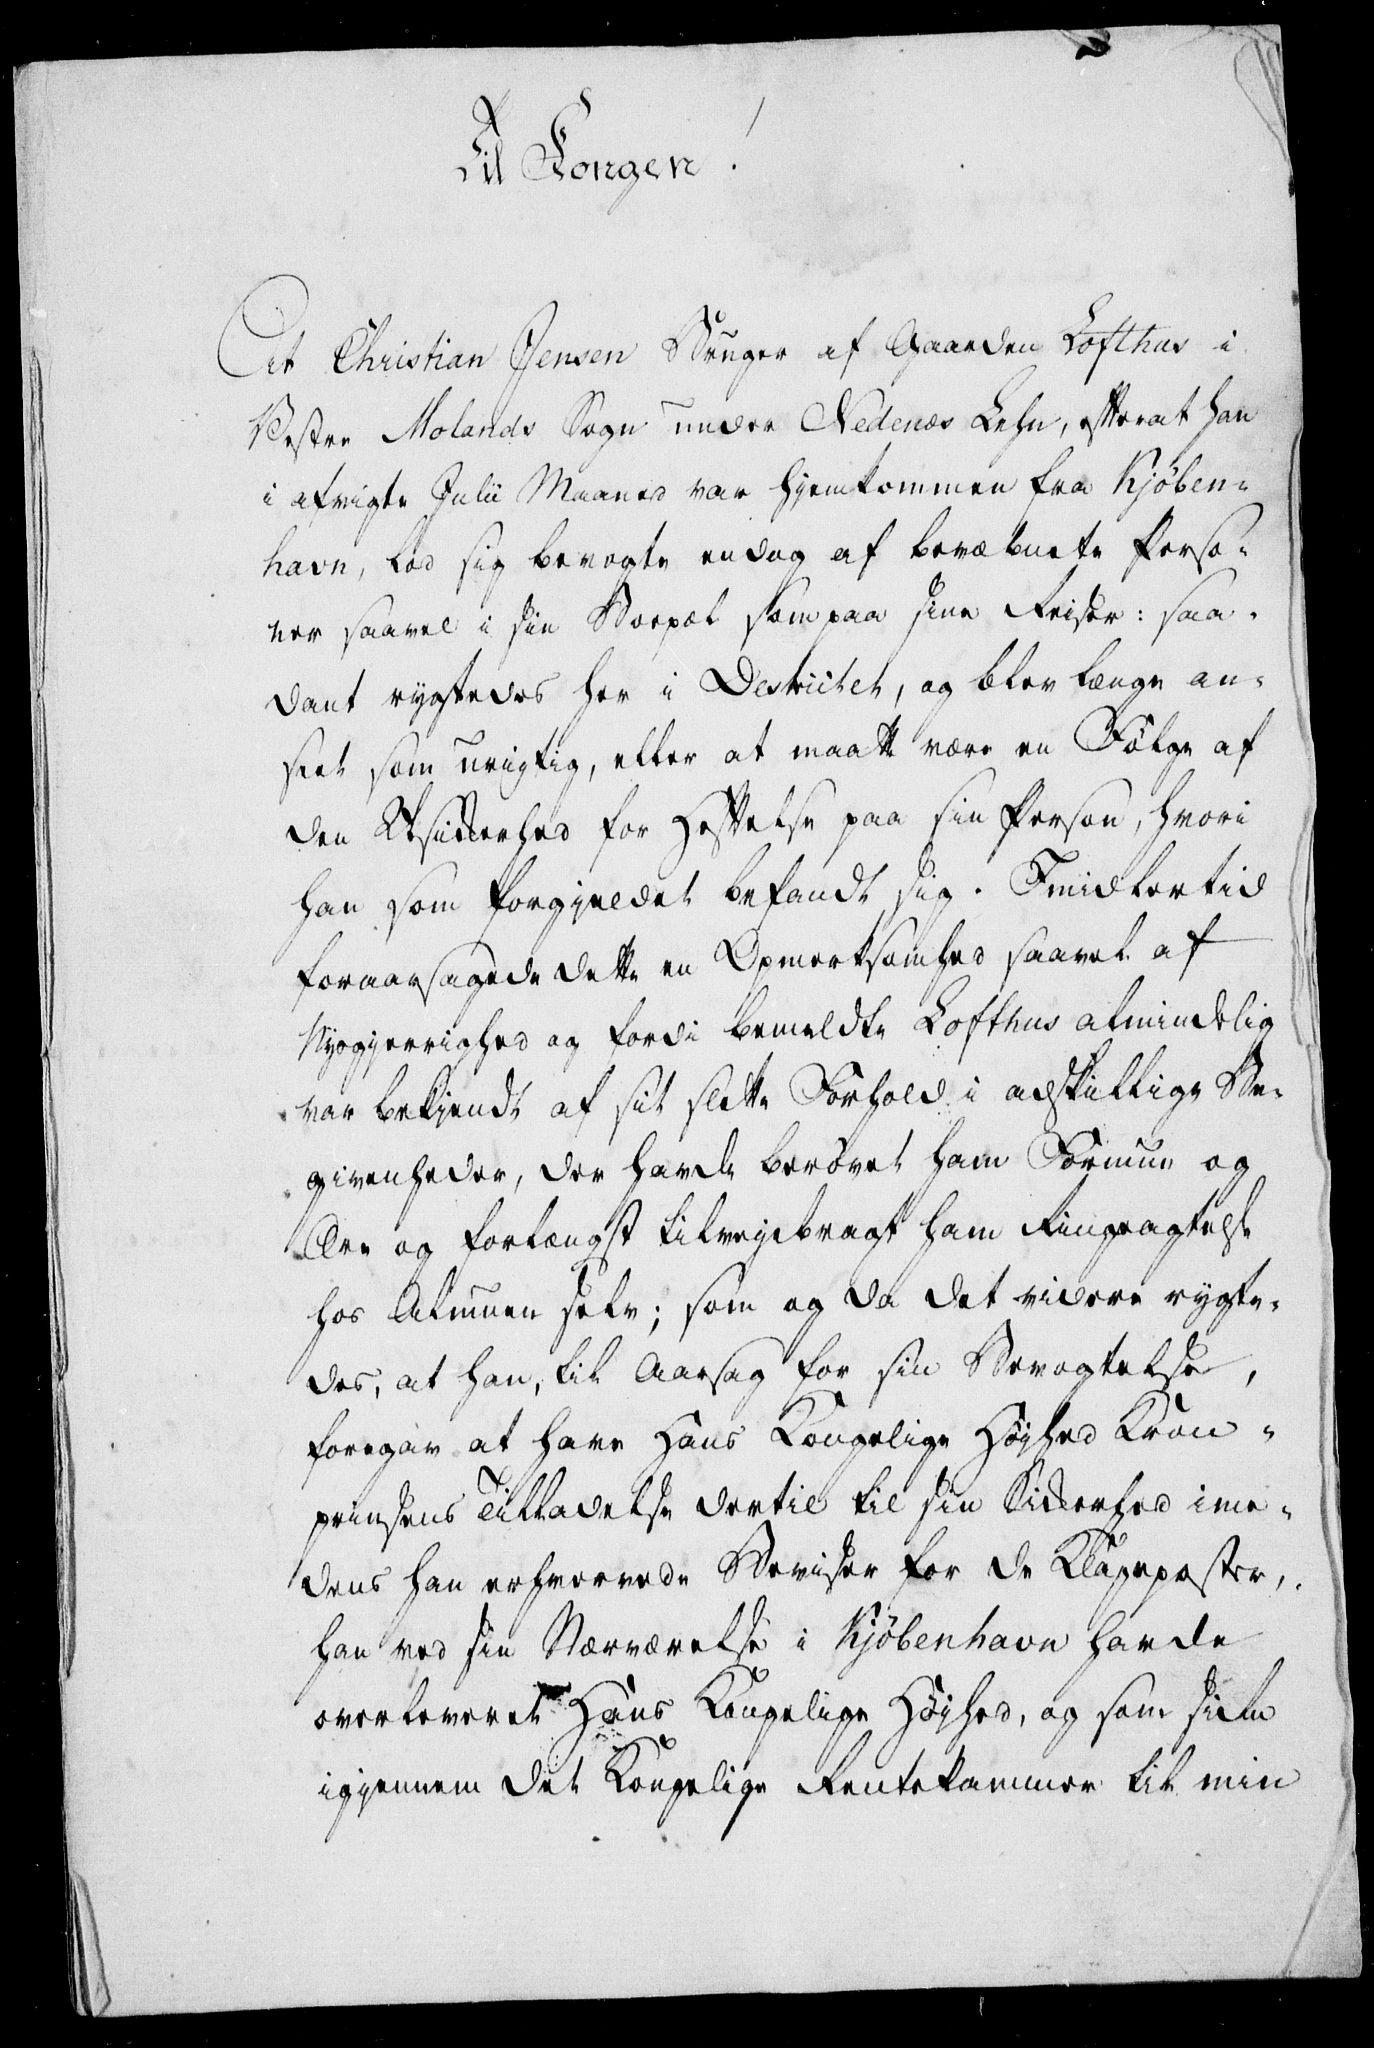 Til Kongen!
At Christian Jensen Bruger af Gaarden Lofthus i
Vestre Molands Sogn under Nedenæs Lehn, efterat han
i afvigte Julii Maaned var hjemkommen fra Kjøben-
havn, lod sig bevogte endog af bevæbnete Perso-
ner saavel i sin Boepæl som paa sine Reiser: saa-
dant rygtedes her i Destrictet, og blev længe an-
seet som urigtig, eller at maatte være en Følge af
den Usikkerhed for Heftelse paa sin Person, hvori
han som forgjeldet befandt sig. Imidlertid
foraarsagede dette en Opmerksomhed saavel af
Nysgjerrighed og fordi bemeldte Lofthus almindelig
var bekjendt af sit slette Forhold i adskillige Be-
givenheder, der havde berøvet ham Formue og
Ære og forlængst tilvejebragt ham Ringeagtelse
hos Almuen selv; som og da det videre rygte-
des, at han, til Aarsag for sin Bevogtelse,
foregav at have Hans Kongelige Højhed Kron-
prinsens Tilladelse dertil til sin Sikkerhed ime-
dens han erhvervede Beviser for de Klageposter,
han ved sin Nærværelse i Kjøbenhavn havde
overleveret Hans Kongelige Højhed, og som siden
igjennem det Kongelige Rentekammer til min